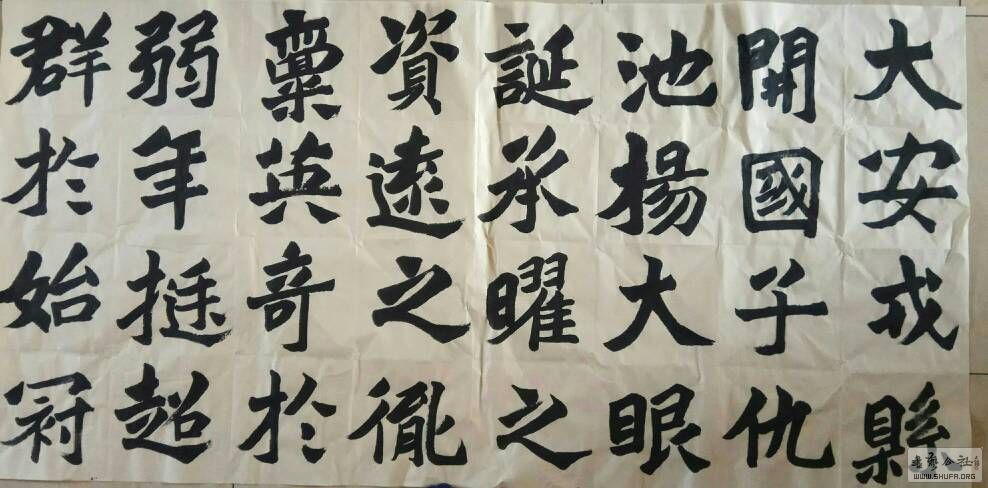 大安戎縣
開國子仇
池楊大眼
誕承曜之
資遠之胤
稟英奇於
弱年挺超
群於始冠
WWW.SHUFA.ORG